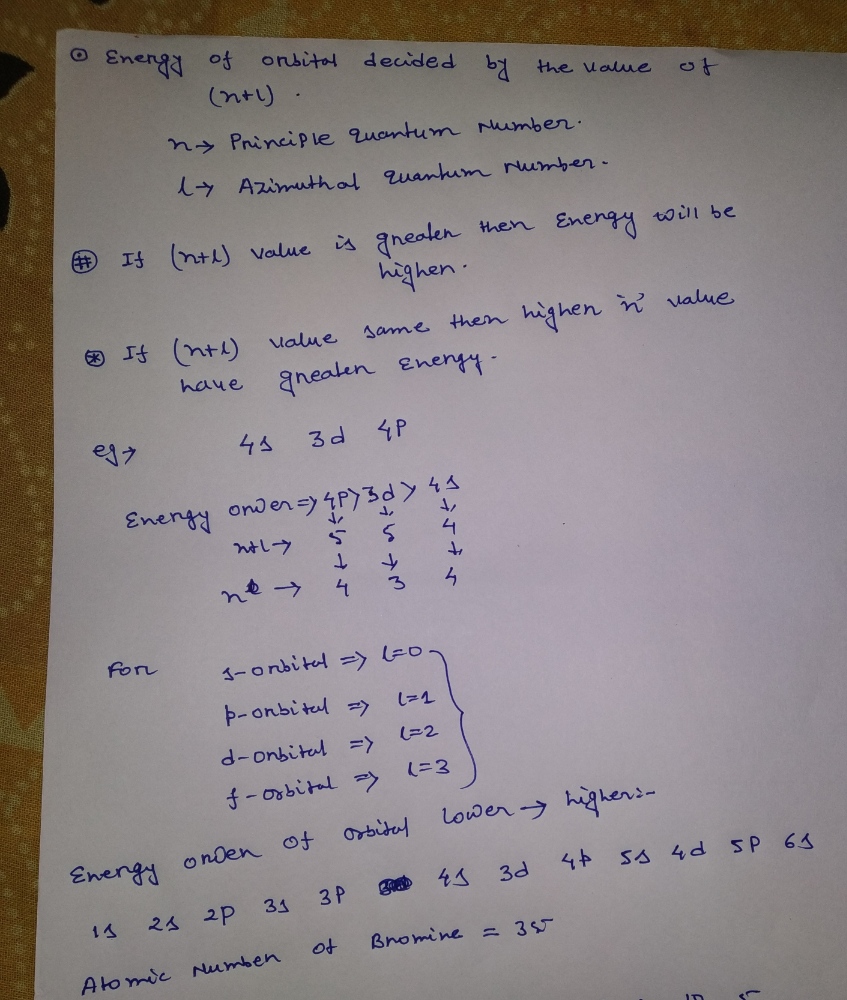 ⊙ Energy of orbital decided by the value of
(n+l) .
n → Principle quantum Number.
l → Azimuthal quantum Number.
# If (n+l) value is greater then Energy will be
higher.
* If (n+l) value same then higher 'n' value
have greater Energy.
eg → 4s 3d 4p
Energy order => 4p > 3d > 4s
↓ ↓ ↓
n+l → 5 5 4
↓ ↓ ↓
n → 4 3 4
For s-orbital => l=0
p-orbital => l=1
d-orbital => l=2
f-orbital => l=3
Energy orDer of orbital lower → higher:-
1s 2s 2p 3s 3p 4s 3d 4p 5s 4d 5p 6s
Atomic Number of Bromine = 35